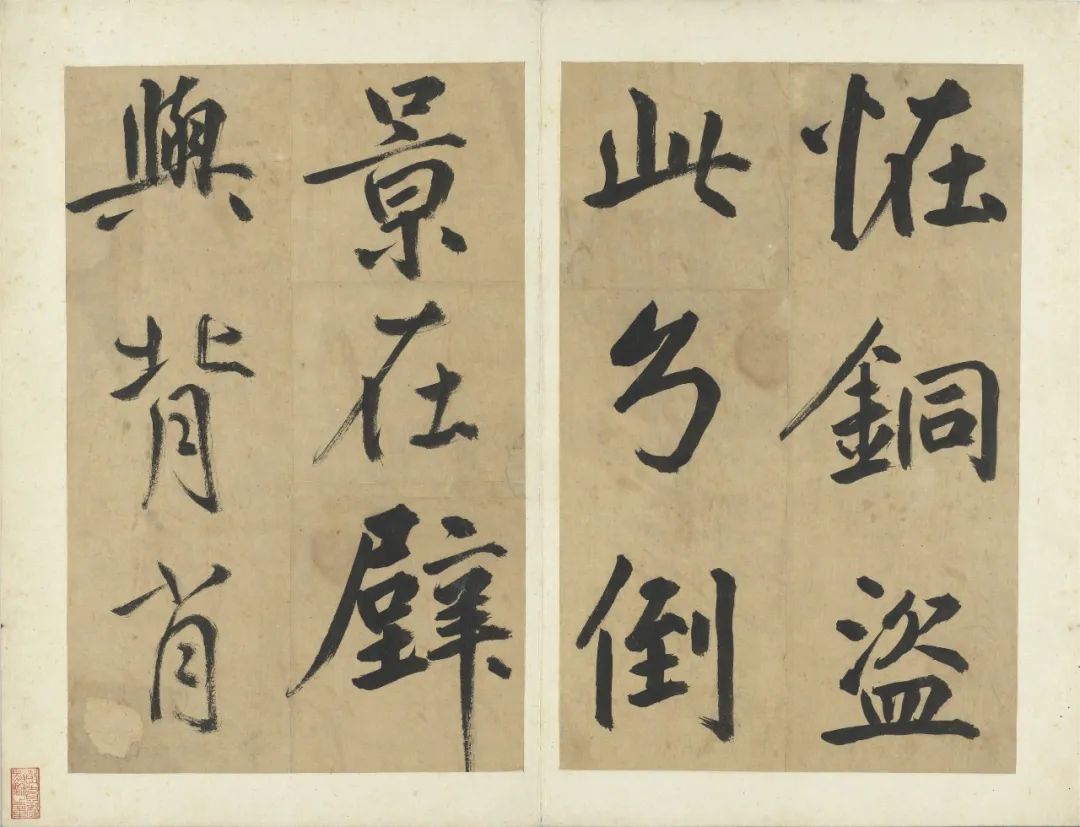 恠銅盜
此兮倒
景在壁
與背肖